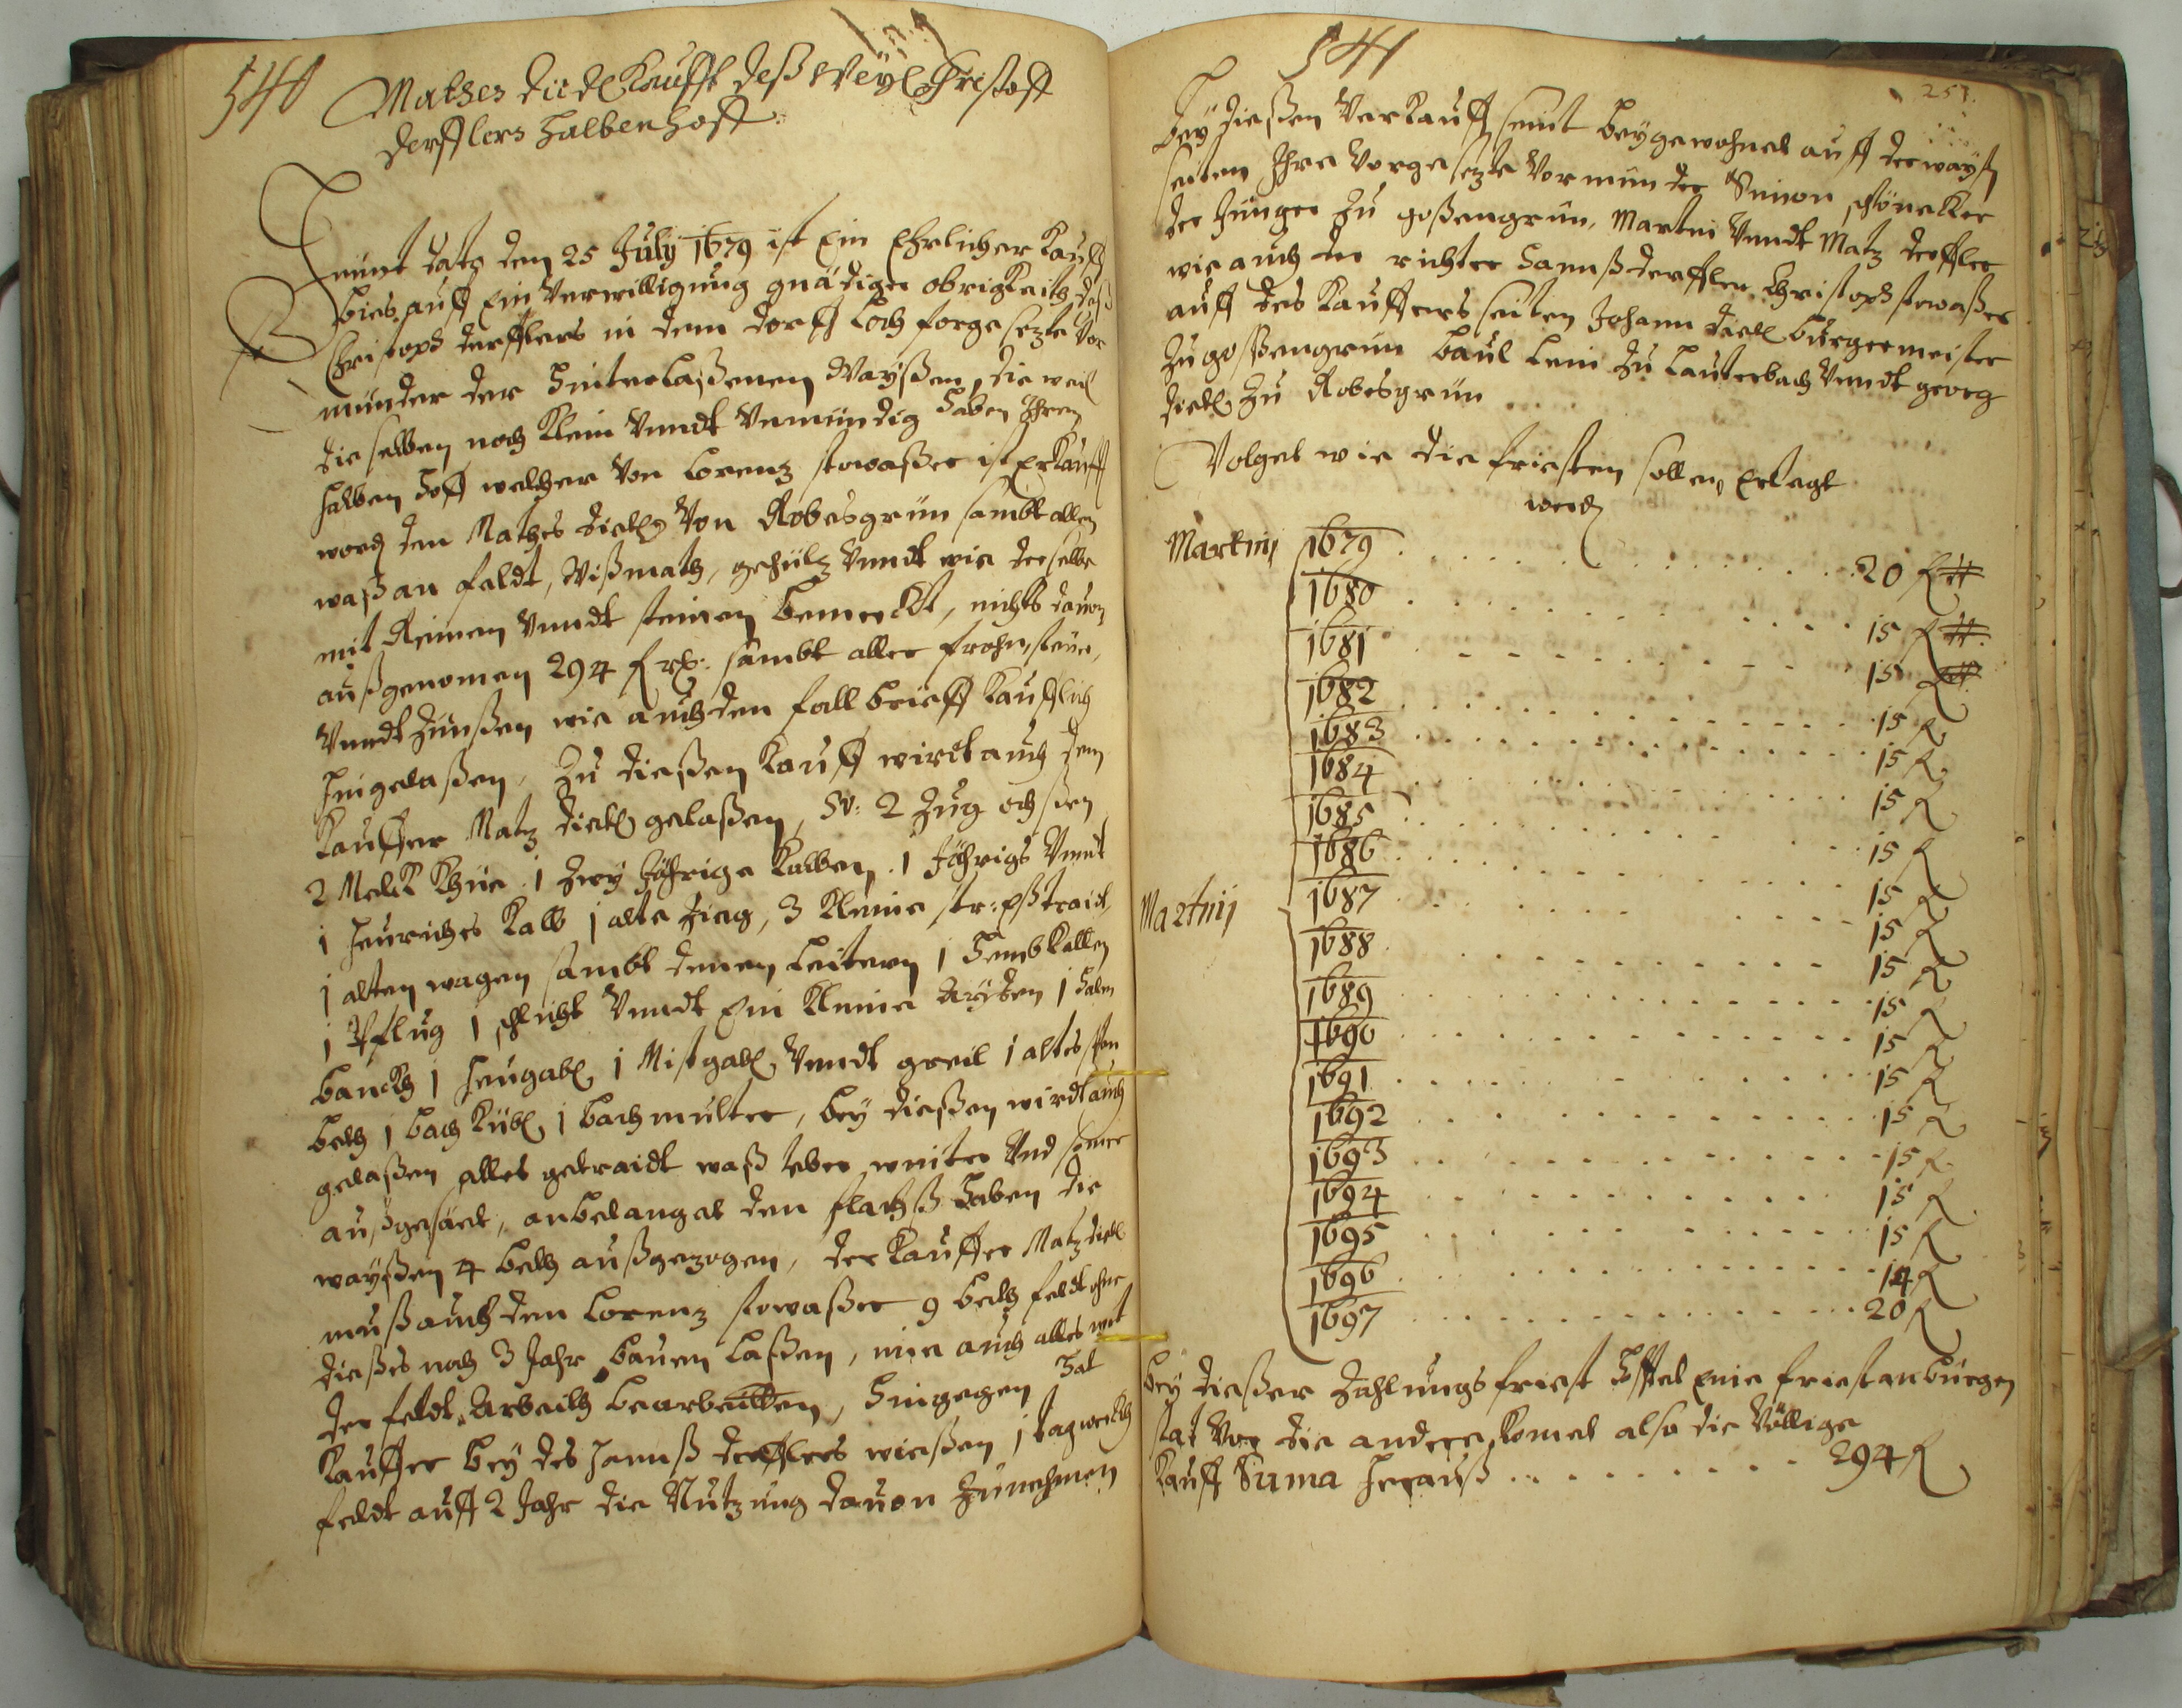 540
Mathes dietl Kaufft deß Weyl: Christoff
derfflers halben hoff.
Heunt datz den 25 July 1679 ist Ein Ehrlicher Kauff
auff Ein Verwilligung gnädiger obrigkeith deß
Christoph derfflers in dem dorff Loch forgesezte Vor
münder der Hinterlaßenen Waÿßen, die weil
die selben noch Klein Vnndt Vnmündig haben Ihren
halben Hoff welcher Von Lorenz stowaßer ist Erkaufft
word dem Mathes dietl Von Robesgrün sambt allen
waß an feldt, Wißmath, gehültz Vnndt wie derselbe
mit Reinen Vnndt steinen bemerckt, nichts dauon
außgenomen 294 f rh: sambt aller frohn, steüer,
Vnndt Zünßen wie auch den fall brieff Kaufflich
hingelaßen, Zu dießen Kauff wirdt auch dem
Kauffer Matz dietl gelaßen, SV: 2 Zug ochßen
2 Melck Khüe. 1 Zweÿ Jährige Kalben. 1 Jährigs Vnnd
1 heuriches Kalb 1 alte Zieg, 3 Kleine
1 alten wagen sambt denen Leitern 1
1 Pflug 1 schlicht Vnndt Ein Kleine 1
banckh 1 heugabl 1 Mistgabl Vnndt greil 1 altes
beth 1 bach Kübl 1 bachmulter, beÿ dießen wirdt auch
gelaßen alles getraidt waß vber winter Vnd somer
außgesäet, anbelanget den flachß haben die
waÿßen 4 beth außgezogen, der Kauffer Matz dietl
muß auch dem Lorenz stowaßer 9 beth feldt ohne
dießes noch 3 Jahr bauen laßen, wie auch alles mit
der feldt Arbeith bearbeitten, Hingegen hat
Kauffer beÿ des Hannß derfflers wießen 1 tagwerckh
feldt auff 2 Jahr die Nutzung dauon Zunehmen
541
251.
beÿ dießen Verkauff seint beÿgewohnet auff der waÿß
seiten Ihre Vorgesezte Vormünder Simon schönecker
der Jünger Zu goßengrün, Martin Vnndt Matz derffler
wie auch der richter Hannß derffler, Christoph stowaßer
auff des Kauffers seiten Johann dietl burgermeister
Zu goßßengrün baul Lein Zu Lauterbach Vnndt georg
dietl Zu Robesgrün
Volget wie die friesten sollen Erlegt
werd
Martinij 1679 . . . . . 20 f
1680 . . . . . 15 f
1681 . . . . . 15 f
1682 . . . . . 15 f
1683 . . . . . 15 f
1684 . . . . . 15 f
1685 . . . . . 15 f
1686 . . . . . 15 f
Martinij 1687 . . . . . 15 f
1688 . . . . . 15 f
1689 . . . . . 15 f
1690 . . . . . 15 f
1691 . . . . . 15 f
1692 . . . . . 15 f
1693 . . . . . 15 f
1694 . . . . . 15 f
1695 . . . . . 15 f
1696 . . . . . 14 f
1697 . . . . . 20 f
beÿ dießer Zahlungs friest Hfftet Eine friest an bürgen
stat Vor die andere, Komet also die Völlige
Kauff Suma herauß . . . . . 294 f